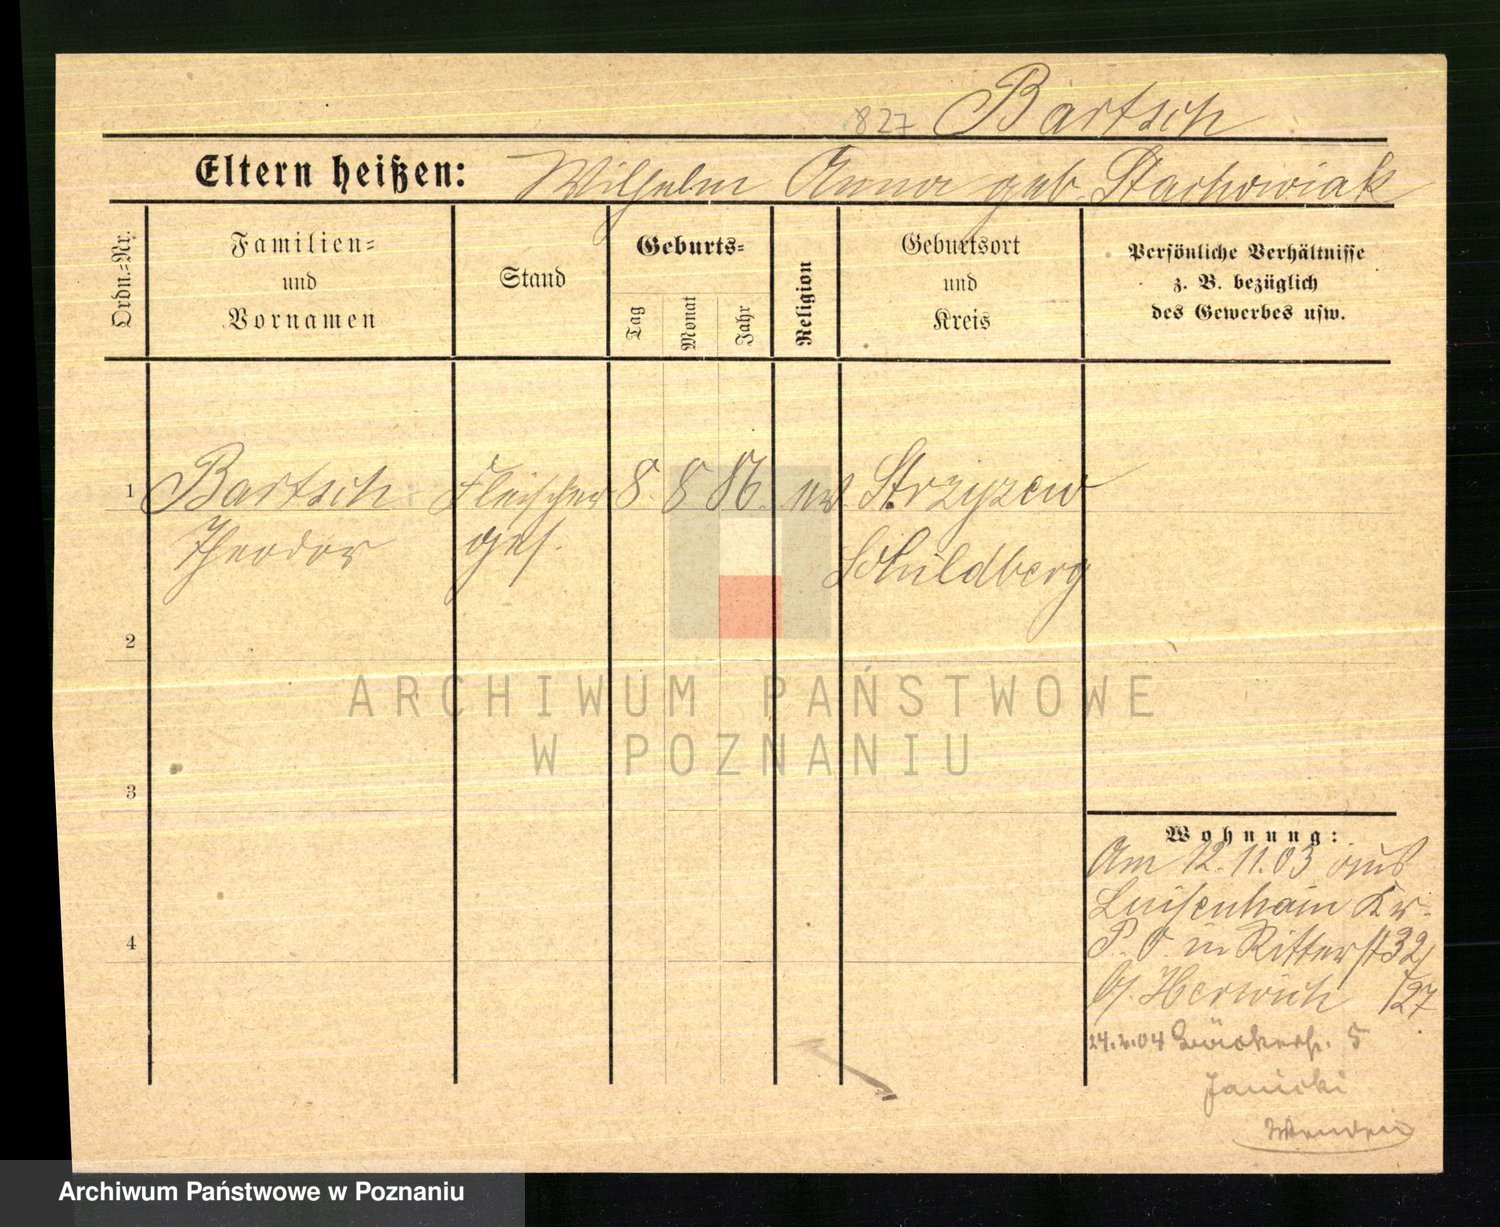 827 Bartsch
Eltern heißen: Wilhelm Anna geb. Stachowiak
Ordn.-Nr.
Familien-
und
Vornamen
Stand
Geburts-
Tag
Monat
Jahr
Religion
Geburtsort
und
Kreis
Persönliche Verhältnisse
z. B. bezüglich
des Gewerbes usw.
1 Bartsch Fleischer 8. 8 86. ev. Strzyzew
Theodor ges. Schildberg
2
ARCHIWUM PAŃSTWOWE
W POZNANIU
3
4
Wohnung:
Am 12.11.03 aus
Luisenhain Kr.
P. O. in Ritterst 32
b/. Herwich /27
24.2.04 Bäckerstr. 5
Janicki
Archiwum Państwowe w Poznaniu